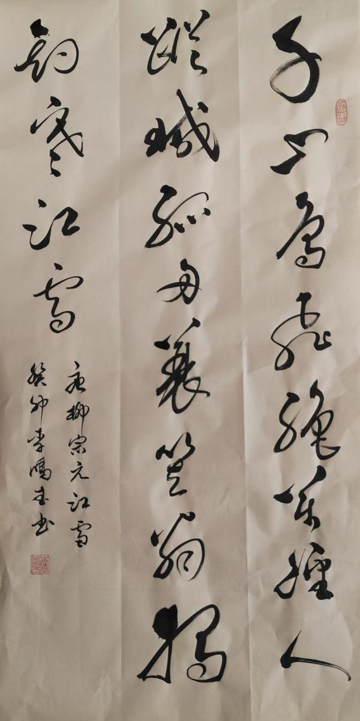 千山鳥飛絕萬徑人
蹤滅孤舟蓑笠翁獨
釣寒江雪
唐柳宗元江雪
癸卯李鴻書